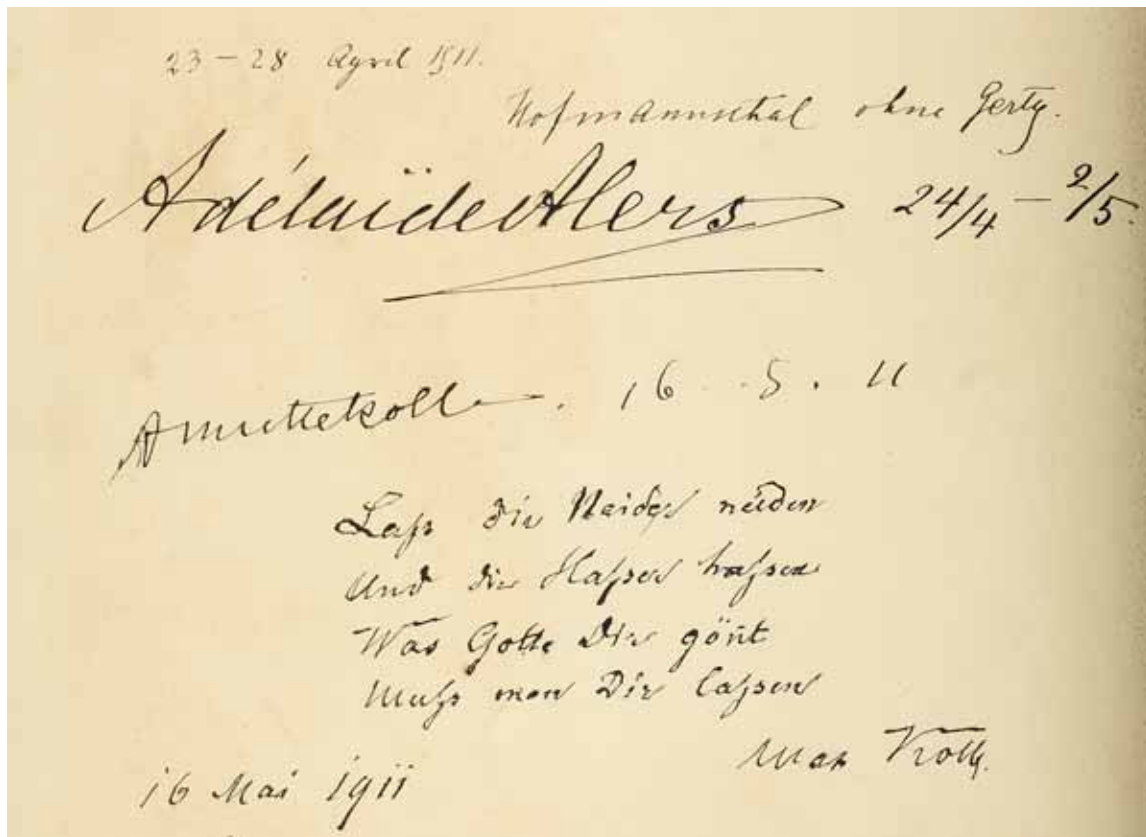 23 – 28 April 1911.
Hofmannsthal ohne Gerty.
Adélaïde Alers 24/4 – 2/5.
Annettekolb. 16. 5. 11
Laß die Neider neiden
Und die Hasser hassen
Was Gott Dir gön̄t
Muß man Dir lassen
Max
16 Mai 1911